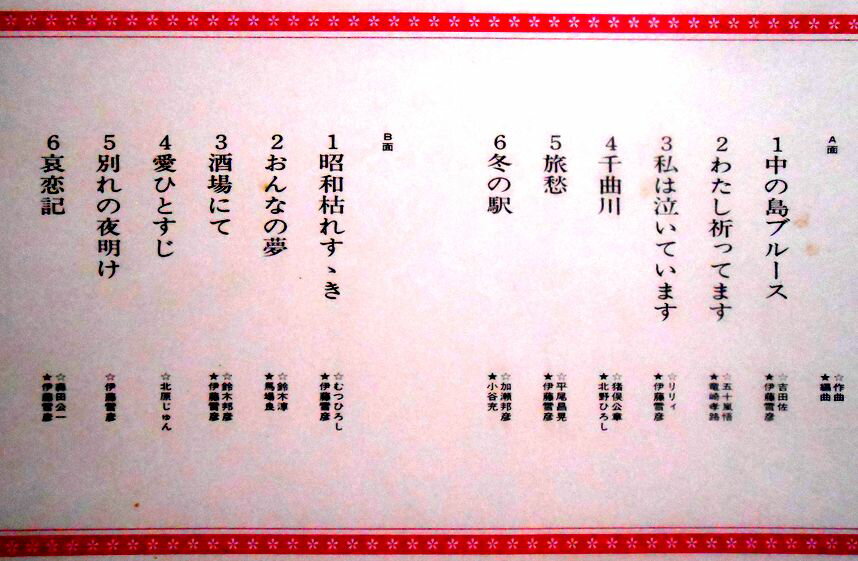 A面
☆作曲
★編曲
1中の島ブルース
☆吉田佐
★伊藤雪彦
2わたし祈ってます
☆五十嵐悟
★竜崎孝路
3私は泣いています
☆リリィ
★伊藤雪彦
4千曲川
☆猪俣公章
★北野ひろし
5旅愁
☆平尾昌晃
★伊藤雪彦
6冬の駅
☆加瀬邦彦
★小谷充
B面
1昭和枯れすゝき
☆むつひろし
★伊藤雪彦
2おんなの夢
☆鈴木淳
★馬場良
3酒場にて
☆鈴木邦彦
★伊藤雪彦
4愛ひとすじ
☆北原じゅん
5別れの夜明け
☆伊藤雪彦
6哀恋記
☆森田公一
★伊藤雪彦